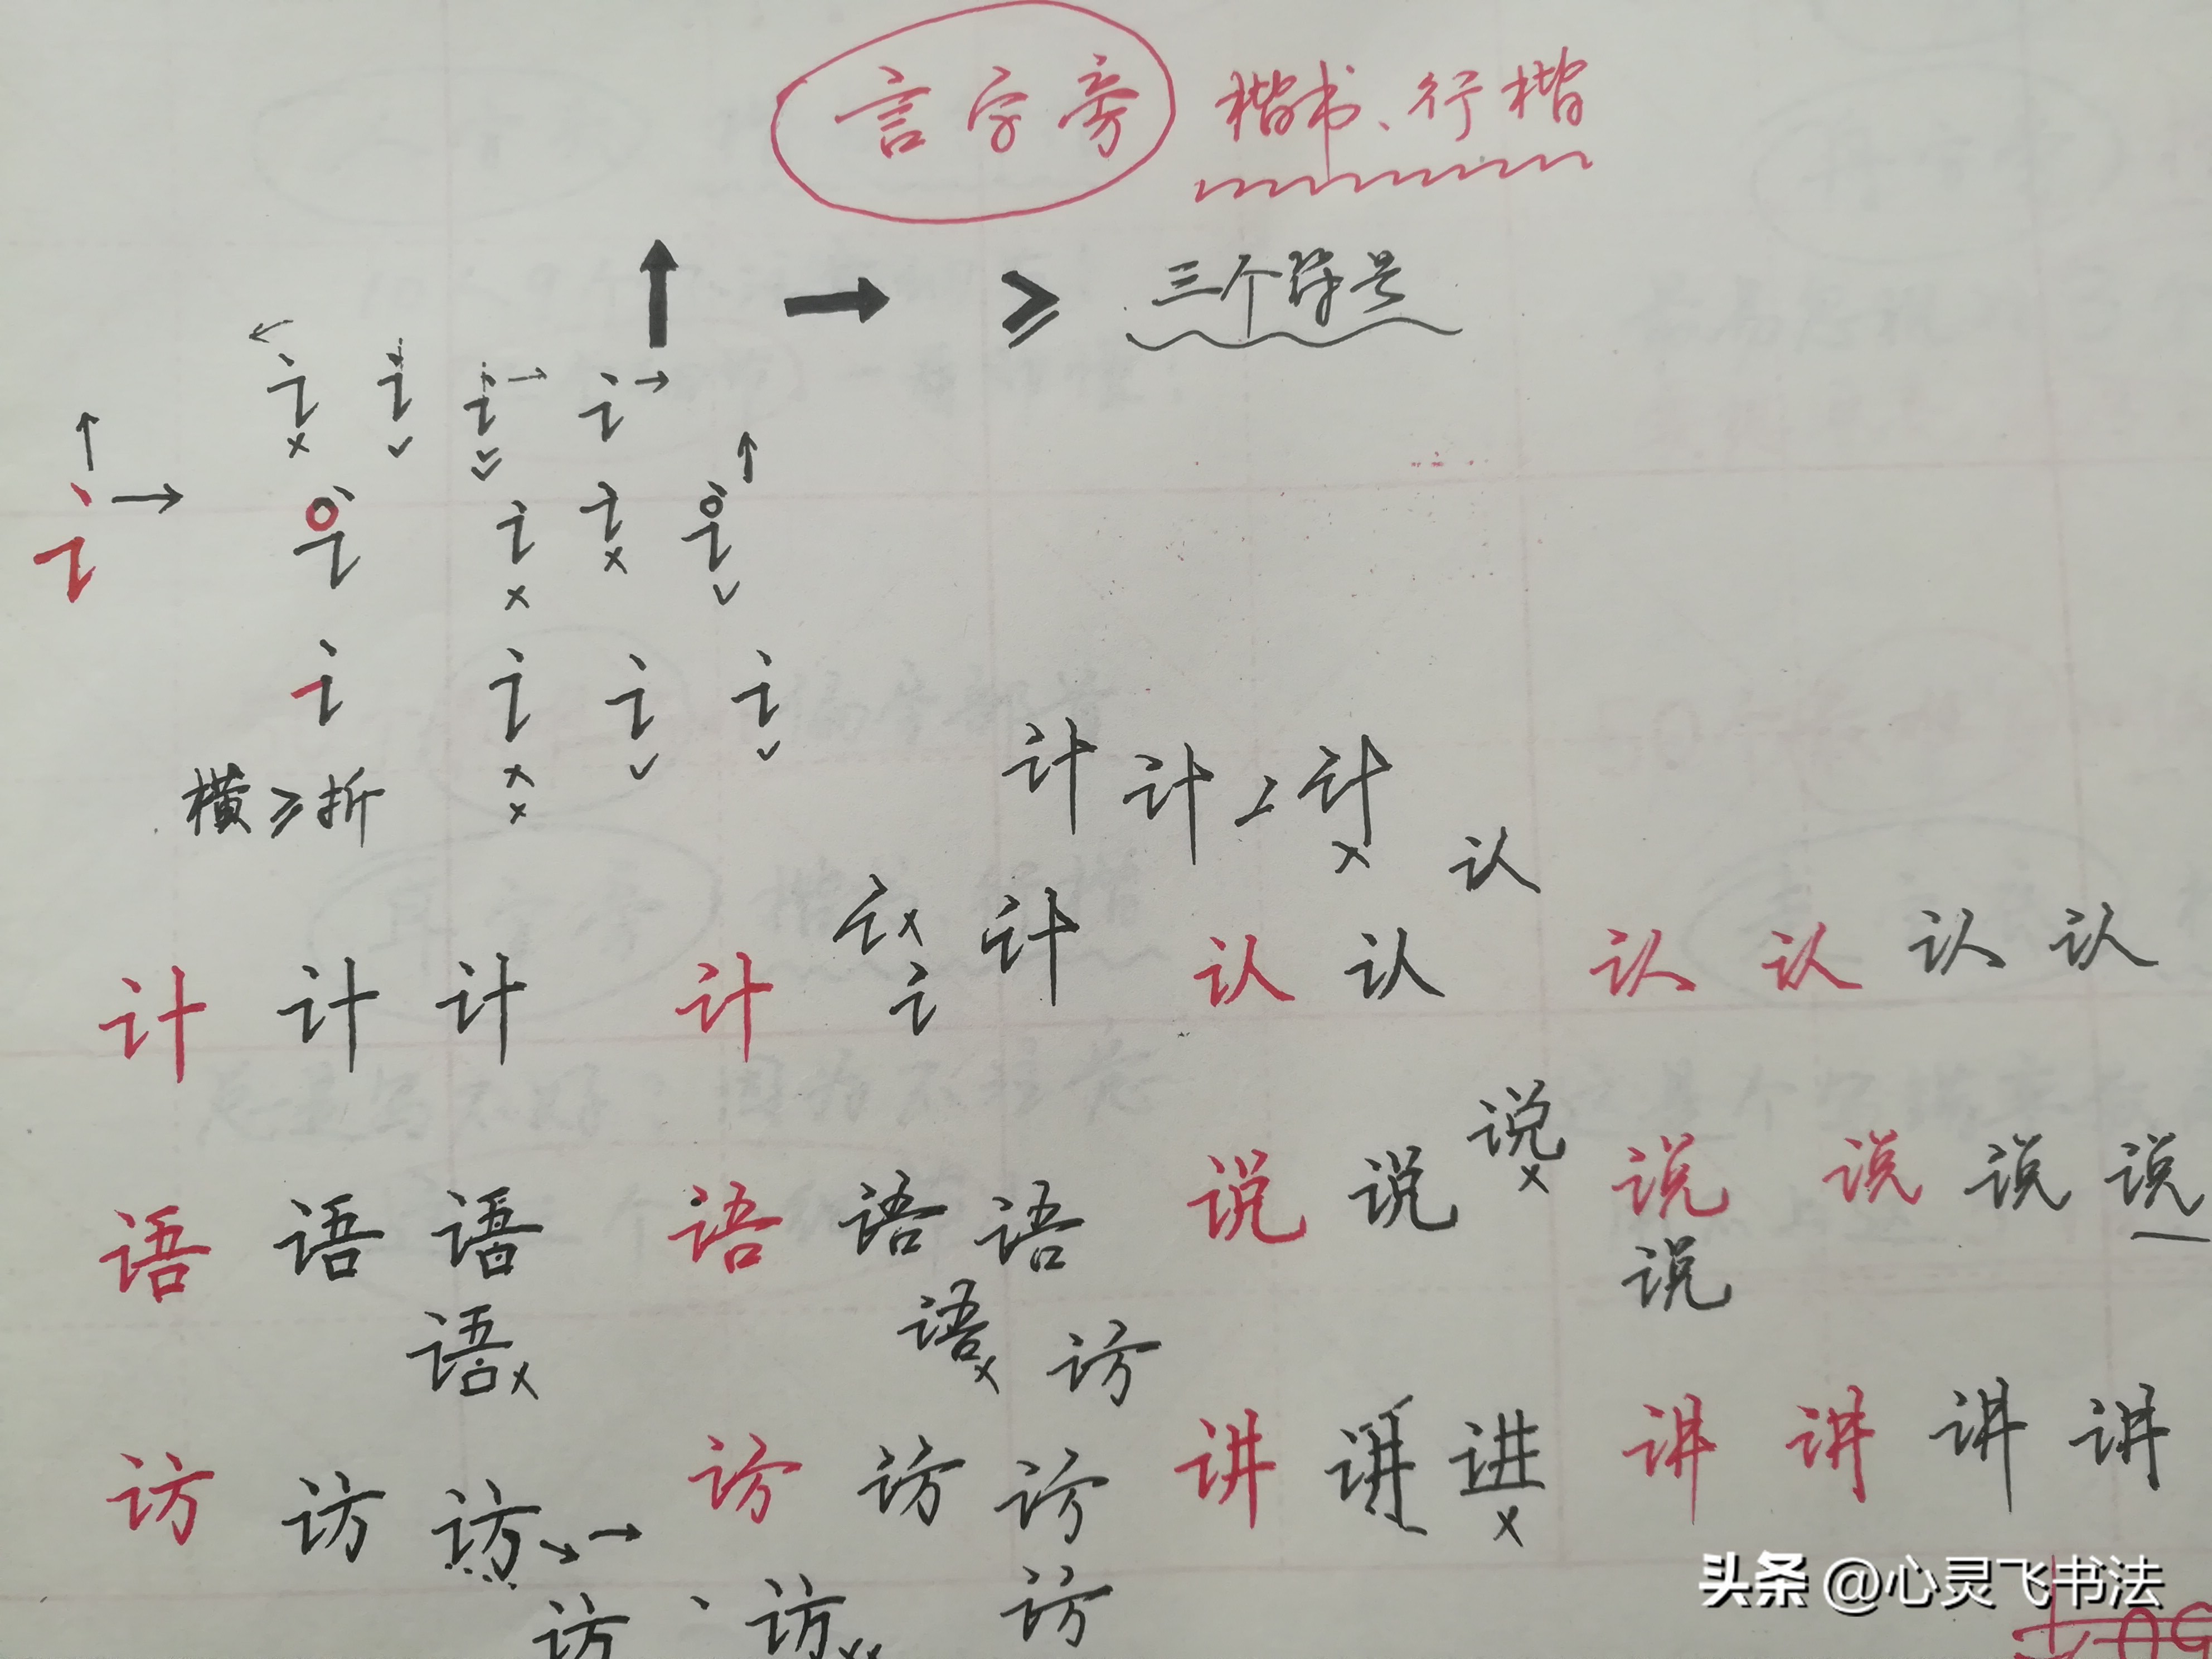 言字旁 楷书、行楷
↑ → ≥ 三个符号
讠 讠 讠 讠
讠 讠 讠 讠 讠
讠 讠 讠 讠
横≥折
计 计 计
认
讠 计
讠
计 计 计 计 认 认 认 认 认 认
说
语 语 语 语 语 语 说 说 说 说 说 说
说
语 语 访
访 访 访 访 访 访 讲 讲 进 讲 讲 讲 讲
访 访 访
头条 @心灵飞书法